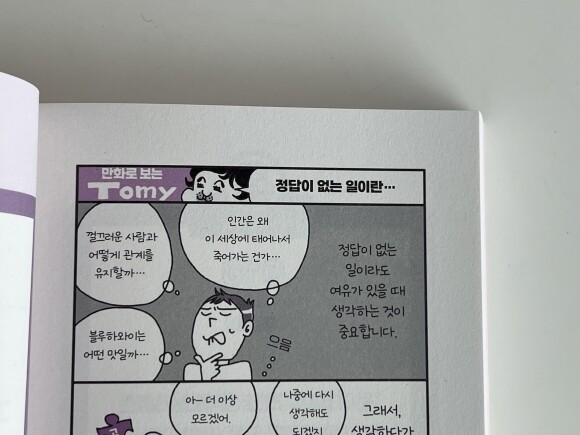 만화로 보는
Tomy
정답이 없는 일이란…
껄끄러운 사람과
어떻게 관계를
유지할까…
인간은 왜
이 세상에 태어나서
죽어가는 건가…
정답이 없는
일이라도
여유가 있을 때
생각하는 것이
중요합니다.
블루하와이는
어떤 맛일까…
으음
아— 더 이상
모르겠어.
나중에 다시
생각해도
되겠지
그래서,
생각하다가